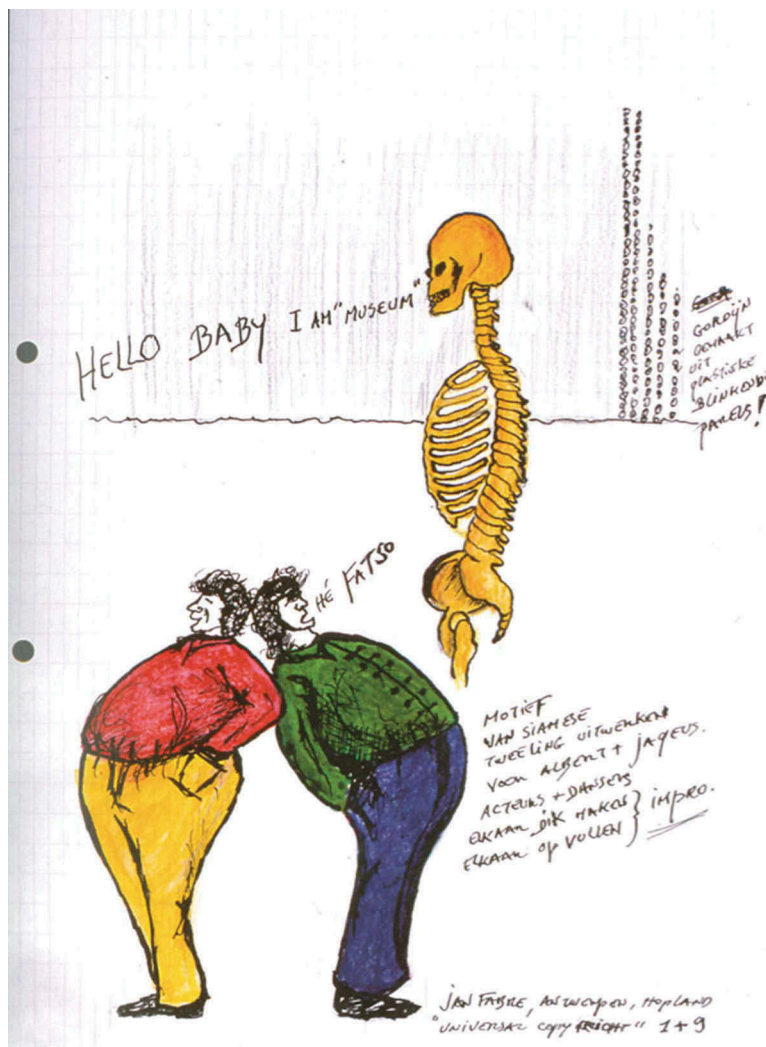 HELLO BABY I AM "MUSEUM"
GORDIJN
GEMAAKT
UIT
PLASTIEKE
BLINKENDE
PARELS!
HÉ FATSO
MOTIEF
VAN SIAMESE
TWEELING UITWERKEN
VOOR ALBERT + JAQEUS.
ACTEURS + DANSERS
ELKAAR DIK MAKEN } IMPRO.
ELKAAR OP VULLEN
JAN FABRE, ANTWERPEN, HOPLAND
"UNIVERSAL COPY RIGHT" 1 + 9